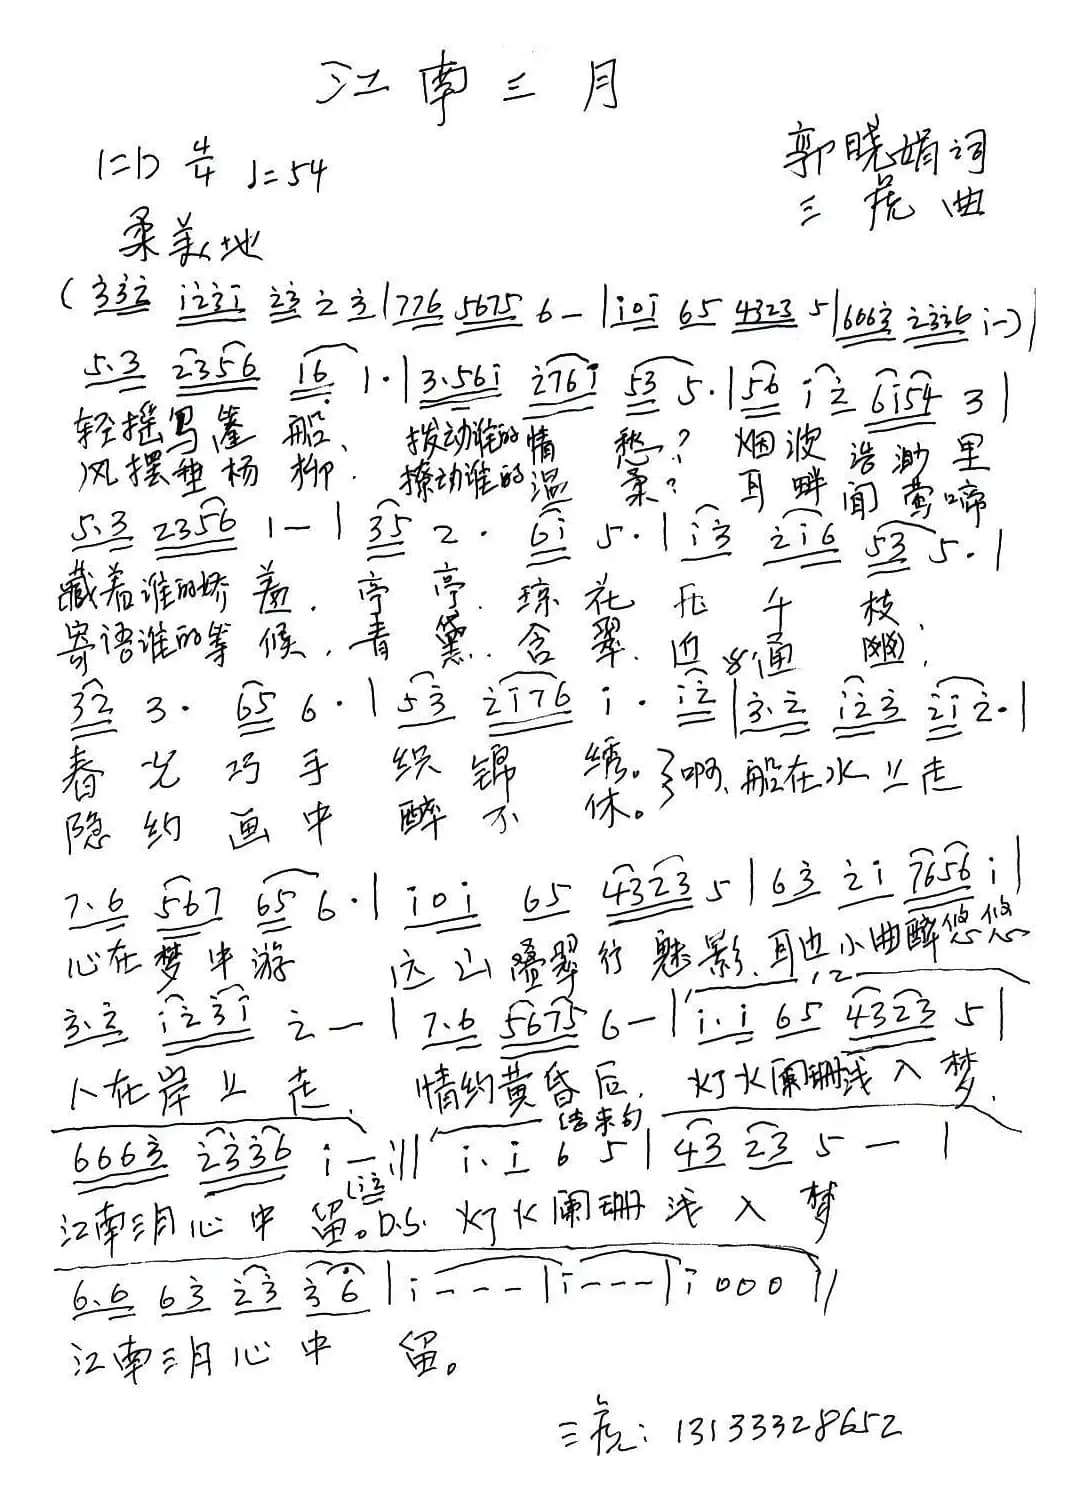 江南三月
1=D 4/4 ♩=54
郭晓娟词
三虎曲
柔美地
(3̇3̇2̇ i2̇3̇i 2̇3̇ 2̇ 3̇|776 5675 6 –|i0i 65 4323 5|6663̇ 2̇3̇3̇6 i–)|
5.3 2356 16 1.|3.56i 2̇76i 53 5.|56 i2̇ 6i54 3|
轻摇乌篷船、拨动谁的情愁？烟波浩渺里
风摆垂杨柳.撩动谁的温柔？耳畔闻莺啼
5.3 2356 1–|35 2. 6i 5.|i3̇ 2̇i6 53 5.|
藏着谁的娇羞.亭亭.琼花开千枝.
寄语谁的等候.青黛.含翠.曲通幽,
32 3. 65 6.|53̇ 2̇i76 i. i2̇|3̇.2̇ i2̇3̇ 2̇i2̇.|
春光巧手织锦绣。}啊、船在水上走
隐约画中醉不休。
7.6 567 65 6.|i0i 65 4323 5|63̇ 2̇i 7656 i|
心在梦中游 远山叠翠行魅影.耳边小曲醉悠悠
3̇.2̇ i2̇3̇i 2̇–|7.6 5675 6–|1,2 i.i 65 4323 5|
人在岸上走.情约黄昏后.灯火阑珊浅入梦.
6663̇ 2̇3̇3̇6 i–:|| 结束句 i.i 6 5|43 23 5 – |
江南三月心中留。(i2̇ D.S. 灯火阑珊浅入梦
6.6 63̇ 2̇3̇ 3̇6|i – – –|i – – –|i 0 0 0||
江南三月心中留。
三虎：13133328652